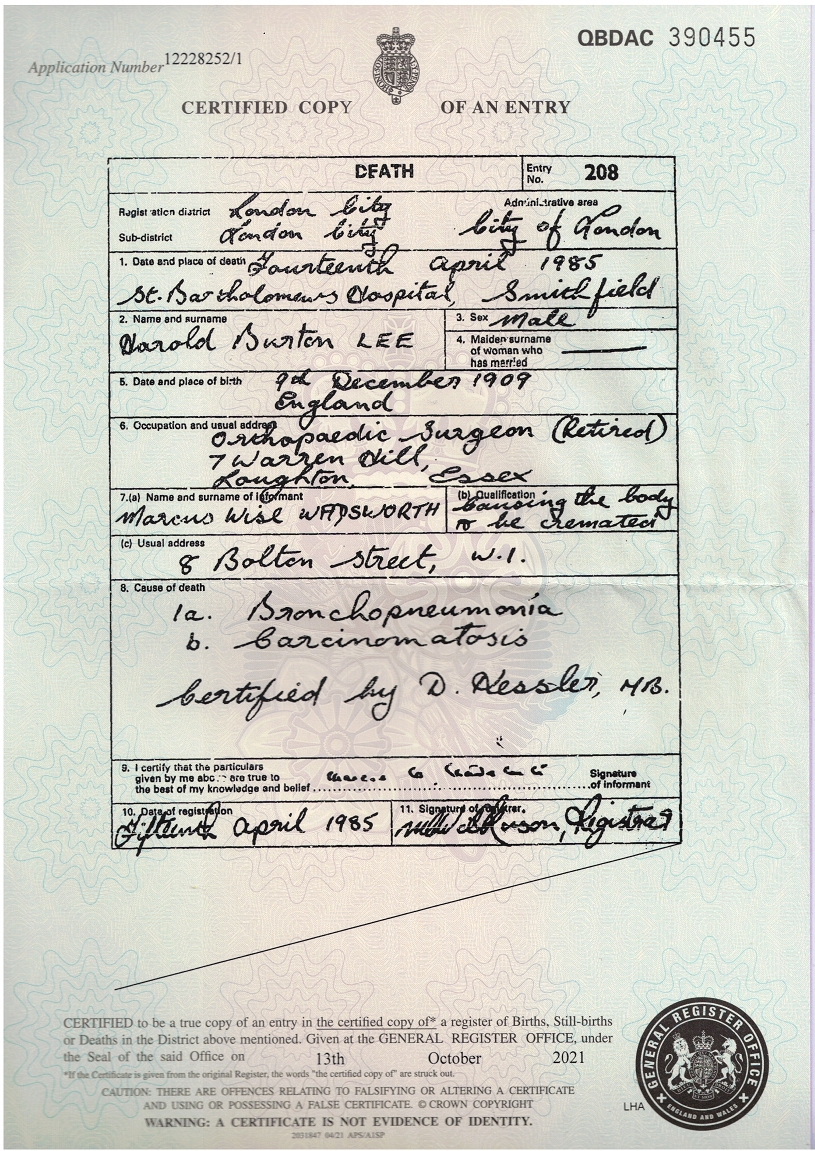 QBDAC 390455
Application Number 12228252/1
CERTIFIED COPY OF AN ENTRY
DEATH
Entry No. 208
Registration district London City
Administrative area
Sub-district London City
City of London
1. Date and place of death Fourteenth April 1985
St. Bartholomews Hospital, Smithfield
2. Name and surname
Harold Burton LEE
3. Sex Male
4. Maiden surname
of woman who
has married
5. Date and place of birth 9th December 1909
England
6. Occupation and usual address
Orthopaedic Surgeon (Retired)
7 Warren Hill,
Loughton, Essex
7.(a) Name and surname of informant
Marcus Wise WADSWORTH
(b) Qualification
Causing the body
to be cremated
(c) Usual address
8 Bolton Street, W.1.
8. Cause of death
1a. Bronchopneumonia
b. Carcinomatosis
Certified by D. Kessler, MB.
9. I certify that the particulars
given by me above are true to
the best of my knowledge and belief
Signature
of informant
10. Date of registration
Fifteenth April 1985
11. Signature of registrar
Registrar
CERTIFIED to be a true copy of an entry in the certified copy of* a register of Births, Still-births
or Deaths in the District above mentioned. Given at the GENERAL REGISTER OFFICE, under
the Seal of the said Office on 13th October 2021
*If the Certificate is given from the original Register, the words "the certified copy of" are struck out.
CAUTION: THERE ARE OFFENCES RELATING TO FALSIFYING OR ALTERING A CERTIFICATE
AND USING OR POSSESSING A FALSE CERTIFICATE. © CROWN COPYRIGHT
WARNING: A CERTIFICATE IS NOT EVIDENCE OF IDENTITY.
2031847 04/21 APS/A1SP
LHA
GENERAL REGISTER OFFICE
ENGLAND AND WALES